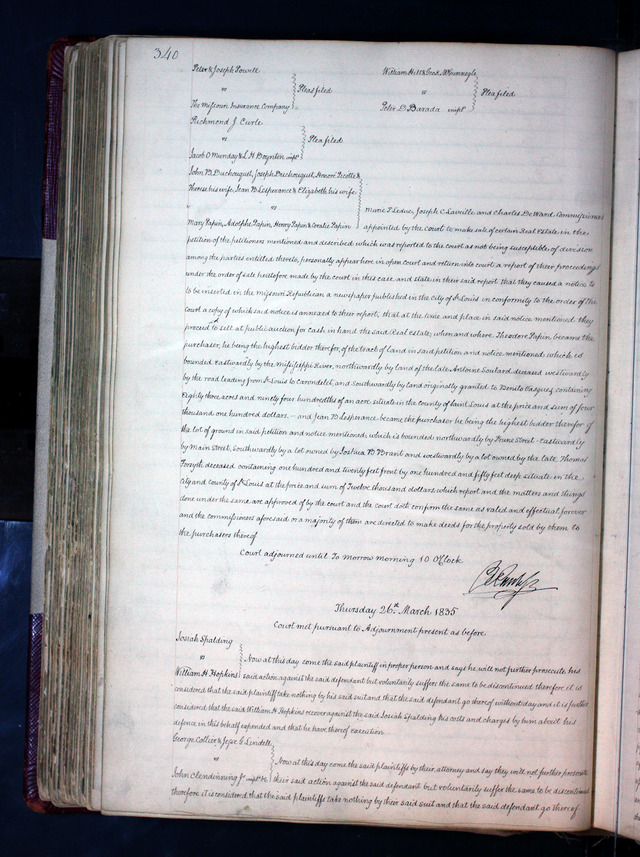 340
Peter & Joseph Powell
vs } Pleas filed
The Missouri Insurance Company
William Hill & Geo. K.
vs } Plea filed
Peter D Barada impld
Richmond J Curle
vs } Plea filed
Jacob O Munday & L H Boynton impld
John B Duchouquet, Joseph Duchouquet, Honore Picotte &
Therese his wife, Jean B Lesperance & Elizabeth his wife
vs
Mary Papin, Adolphe Papin, Henry Papin & Coralie Papin
Marie P Leduc, Joseph C Laville and Charles De Ward Commissioners
appointed by the Court to make sale of certain Real Estate in the
petition of the petitioners mentioned and described which was reported to the court as not being susceptible of division
among the parties entitled thereto, personally appear here in open court and return into court a report of their proceedings
under the order of sale heretofore made by the court in this case and state in their said report that they caused a notice to
to be inserted in the Missouri Republican a newspaper published in the city of St Louis in conformity to the order of the
Court a copy of which said notice is annexed to their report; that at the time and place in said notice mentioned they
proceed to sell at public auction for cash in hand the said Real Estate; when and where Theodore Papin became the
purchaser, he being the highest bidder therefor, of the tract of land in said petition and notice mentioned which is
bounded Eastwardly by the Mississippi River, northwardly by land of the late Antoine Soulard deceased westwardly
by the road leading from St Louis to Carondelet, and Southwardly by land originally granted to Benito Vasques, containing
Eighty three acres and ninety four hundredths of an acre situate in the county of Saint Louis at the price and sum of four
thousand one hundred dollars. — and Jean B Lesperance became the purchaser he being the highest bidder therefor of
the lot of ground in said petition and notice mentioned, which is bounded northwardly by Prune Street - Eastwardly
by Main Street, Southwardly by a lot owned by Joshua B Brant and westwardly by a lot owned by the late Thomas
Forsyth deceased containing one hundred and twenty feet front by one hundred and fifty feet deep situate in the
City and county of St Louis at the price and sum of Twelve thousand dollars; which report and the matters and things
done under the same are approved of by the court and the court doth confirm the same as valid and effectual forever
and the commissioners aforesaid or a majority of them are directed to make deeds for the property sold by them to
the purchasers thereof
Court adjourned until To morrow morning 10 O'Clock
Thursday 26th March 1835
Court met pursuant to Adjournment present as before.
Josiah Spalding
vs
William H. Hopkins
Now at this day come the said plaintiff in proper person and says he will not further prosecute his
said action against the said defendant but voluntarily suffer the same to be discontinued therefore it is
considered that the said plaintiff take nothing by his said suit and that the said defendant go thereof without day and it is further
considered that the said William H Hopkins recover against the said Josiah Spalding his costs and charges by him about his
defence in this behalf expended and that he have thereof execution
George Collier & Jesse G Lindell
vs
John Clendinning Jr impl &c
Now at this day come the said plaintiffs by their attorney and say they will not further prosecute
their said action against the said defendant but voluntarily suffer the same to be discontinued
therefore it is considered that the said plaintiffs take nothing by their said suit and that the said defendant go thereof